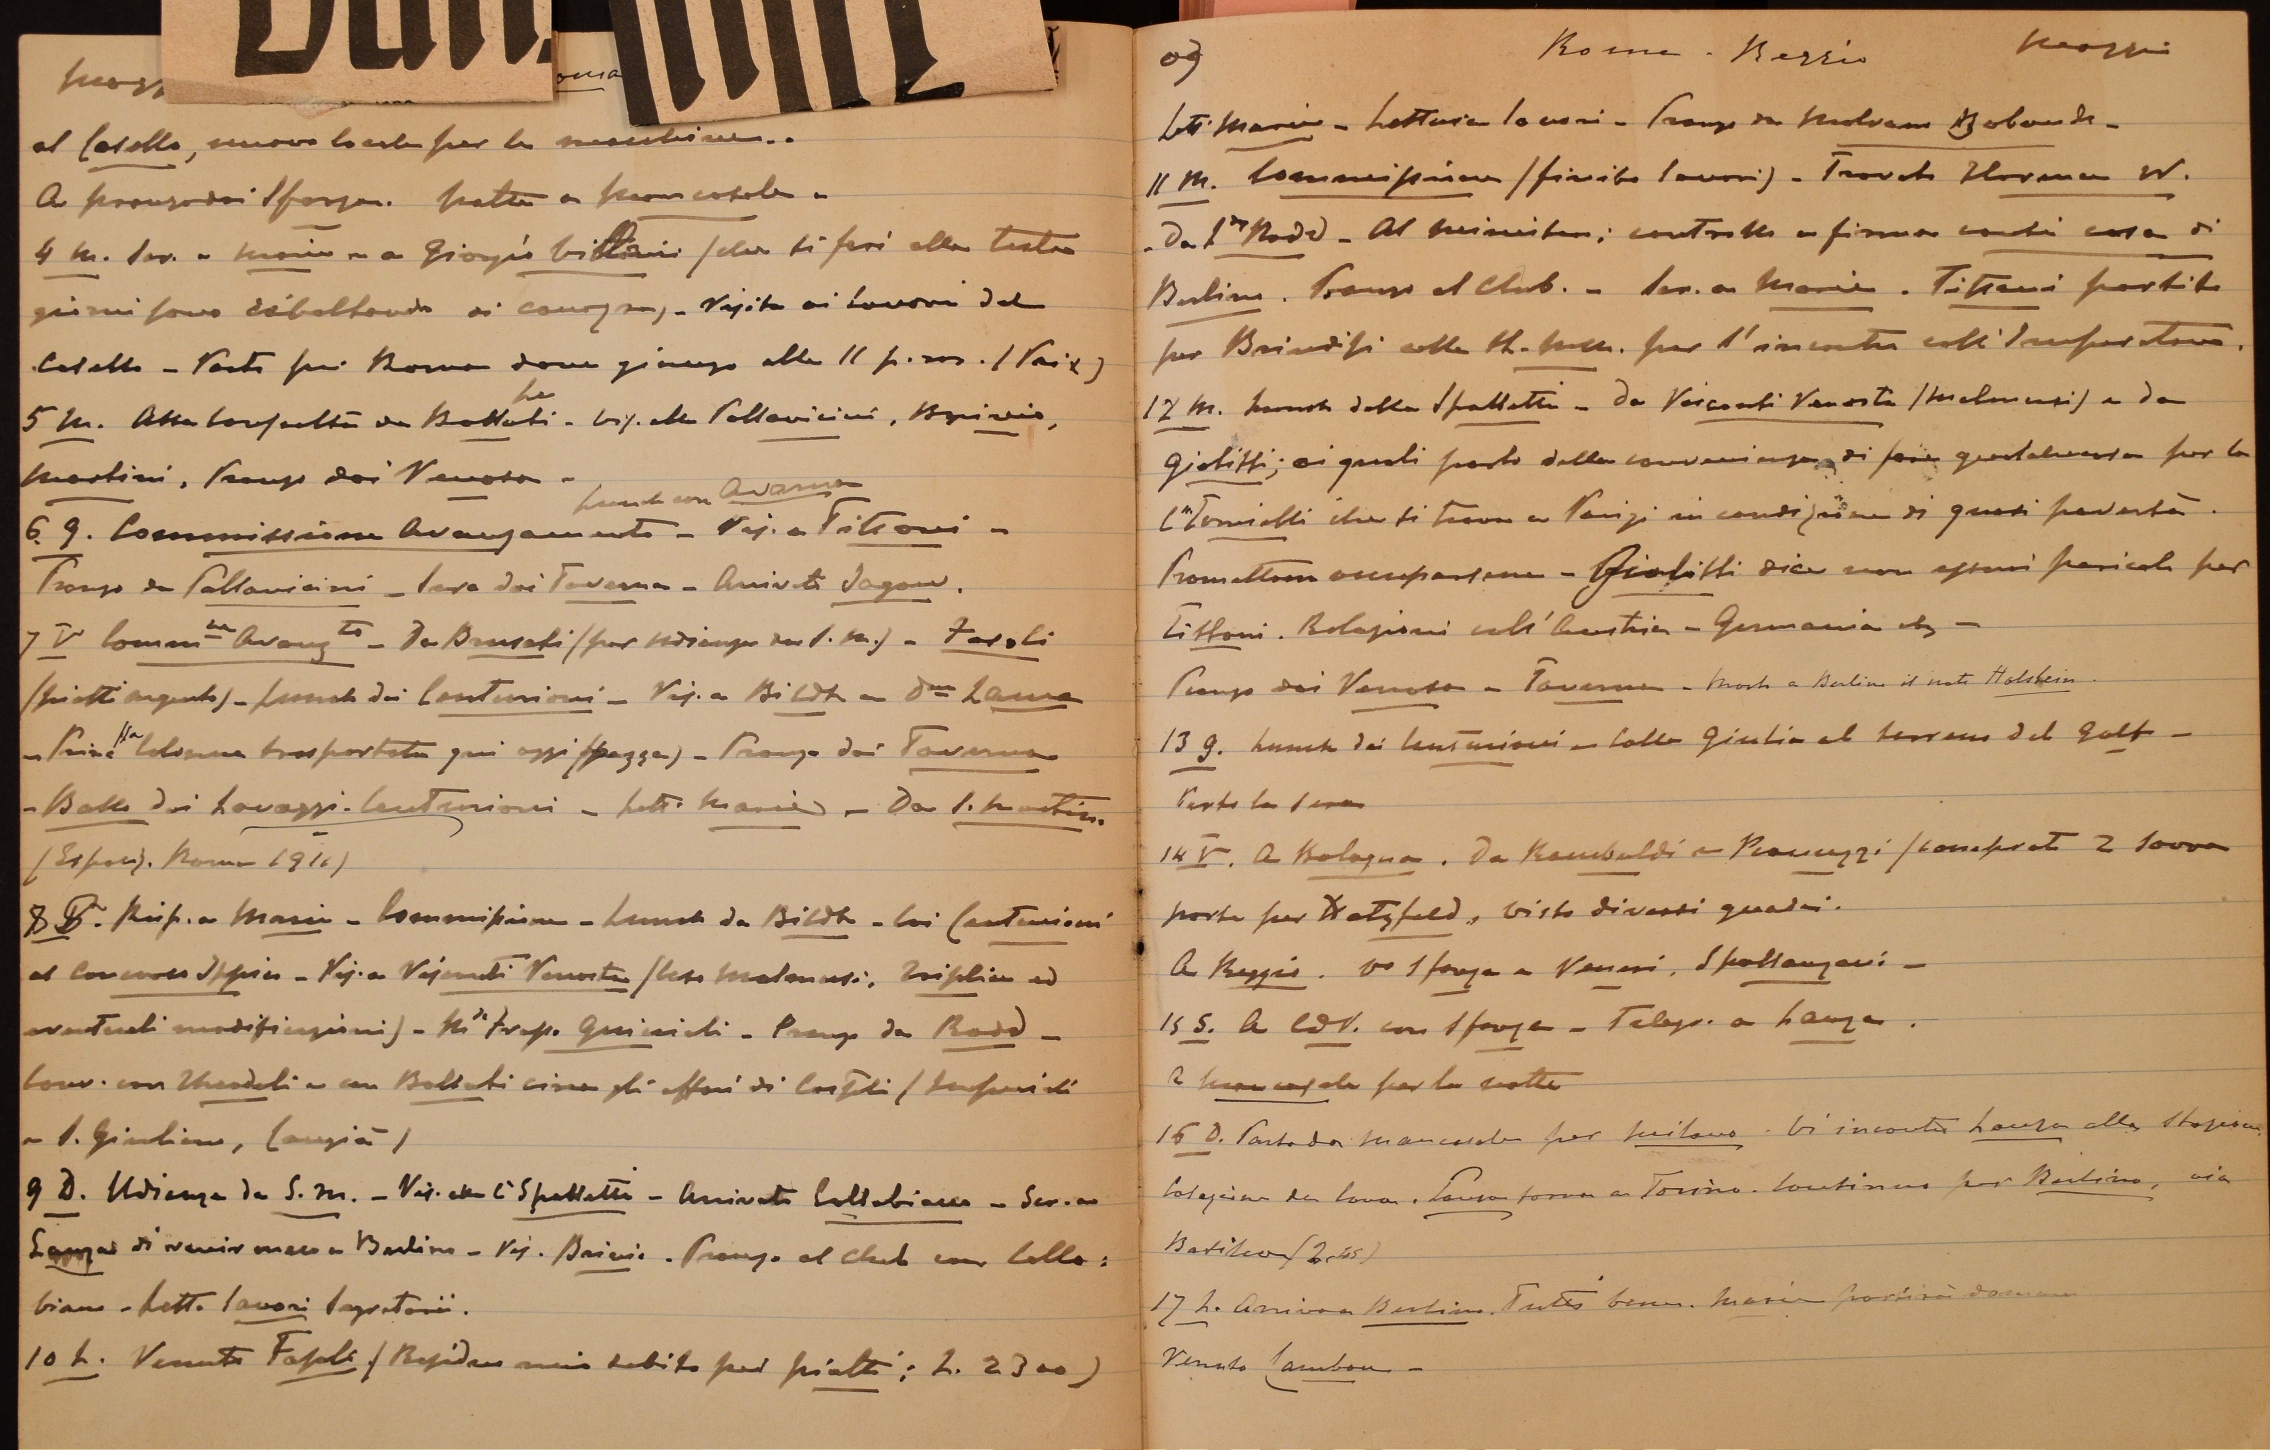 Magg
oma
al Casello, nuovo locale per le macchine..
A pranzo dai Sforza. Notte a Mancasale -
4 M. Scr. a Marie - a Giorgio (che si ferì alla testa
giorni sono ribaltando di carrozza) - Visita ai lavori del
Casello - Parto per Roma dove giungo alle 11 p.m. (Paix)
5 M. Alla Consulta da Bollati - Vis. alla Pallavicini, Brivio,
Martini, Pranzo dai Venosa -
Lunch con Avarna
6. G. Commissione Avanzamento - Vis. a Tittoni -
Pranzo da Pallavicini - Sera dai Taverna - Arrivato Jagow.
7 V Comm.ne Avanz.to - Da Brusati (per udienza da S. M.) - Fasoli
(piatti argento) - Lunch dai Centurioni - Vis. a Bildt a Laura
- Colonna trasportata qui oggi - Pranzo dai Taverna
- Ballo dai Lavaggi-Centurioni - Lett. Marie - Da S. Martino
(Espos. Roma 1911)
8 S. Risp. a Marie - Commissione - Lunch da Bildt - Coi Centurioni
al Concorso Ippico - Vis. a Visconti Venosta (Triplice ed
eventuali modificazioni) - Guiccioli - Pranzo da Rodd -
Conv. con Theodoli e con Bollati circa gli affari di
e S. Giuliano,
9 D. Udienza da S. M. - Vis. alla Cssa Spalletti - Arrivato Collobiano - Scr. a
Lanza di venir meco a Berlino - Vis. Brivio. Pranzo al Club con Collo=
biano - Letto lavori Segretarii.
10 L. Venuto Fasoli (Residuo mio debito per piatti: L. 2300)
09 Roma - Reggio Maggio
Lett. Marie - Lettura lavori - Pranzo da
11 M. Commissione (finito lavori) - Trovato Florence W.
- Da Lady Rodd - Al Ministero; controllo e firma conti casa di
Berlino. Pranzo al Club. - Scr. a Marie. Tittoni partito
per Brindisi colle LL. MM. per l'incontro coll'Imperatore.
12 M. Lunch dalla Spalletti - Da Visconti Venosta e da
Giolitti; ai quali parlo della convenienza di fare qualchecosa per la
Csa Tornielli che si trova a Parigi in condizione di quasi povertà.
Promettono occuparsene - Giolitti dice non esservi pericolo per
Tittoni. Relazioni coll'Austria - Germania etc -
Pranzo dai Venosa - Taverna - Morto a Berlino il noto Holstein.
13 G. Lunch dai Centurioni - Colla Giulia al terreno del Golf -
Parto la sera
14 V. A Bologna. Da Rambaldi e (comprato 2 sovra
porte per Hatzfeld, visto diversi quadri.
A Reggio. Vo Sforza a Veneri, Spallanzani -
15 S. A con Sforza - Telegr. a Lanza.
a Mancasale per la notte
16 D. Parto da Mancasale per Milano. Vi incontro Lanza alla Stazione.
Colazione da Cova. Lanza torna a Torino. Continuo per Berlino, via
Basilea
17 L. Arrivo a Berlino. Tutto bene. Marie partirà domani
Venuto Cambon -